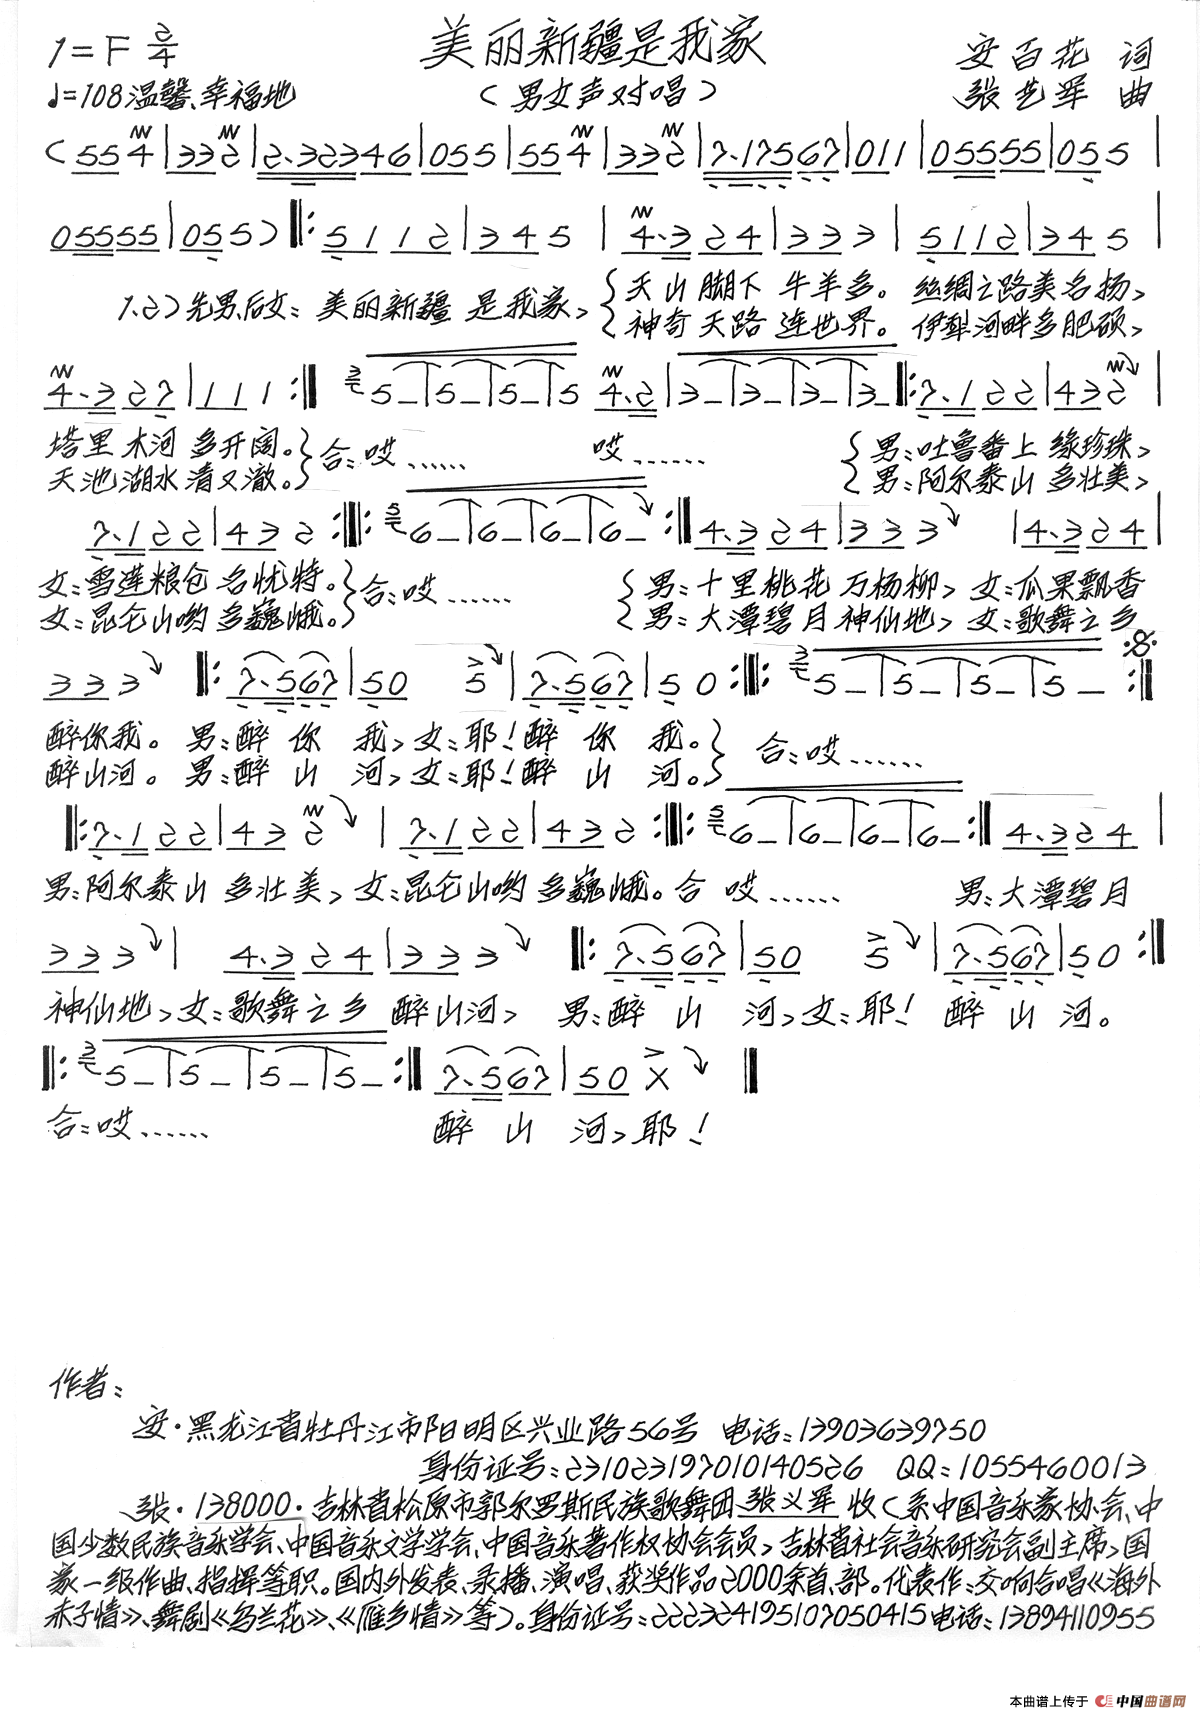 美丽新疆是我家
1=F 2/4
安百花 词
♩=108 温馨、幸福地
(男女声对唱)
张艺军 曲
(55 4|33 2|2.32346|055|55 4|33 2|7.17567|011|05555|055|
05555|055)‖:5112|345|4.324|333|5112|345|
1.2)先男、后女:美丽新疆 是我家,{天山脚下 牛羊多。丝绸之路美名扬,
神奇天路 连世界。伊犁河畔多肥硕,
4.327|111:‖ 5_|5_|5_|5 4.2|3_|3_|3_|3_‖:7.122|432|
塔里木河 多开阔。}合:哎…… 哎…… {男:吐鲁番上 缘珍珠,
天池湖水 清又澈。 男:阿尔泰山 多壮美,
7.122|432:‖:6_|6_|6_|6_:‖4.324|333 |4.324|
女:雪莲粮仓 名优特。}合:哎…… {男:十里桃花 万杨柳,女:瓜果飘香
女:昆仑山哟 多巍峨。 男:大潭碧月 神仙地,女:歌舞之乡
333 ‖:7.567|50 5|7.567|50:‖:5_|5_|5_|5_:‖
醉你我。男:醉 你 我,女:耶!醉 你 我。}合:哎……
醉山河。男:醉 山 河,女:耶!醉 山 河。
‖:7.122|432|7.122|432:‖:6_|6_|6_|6_:‖4.324|
男:阿尔泰山 多壮美,女:昆仑山哟 多巍峨。合 哎…… 男:大潭碧月
333| 4.324|333 ‖:7.567|50 5|7.567|50:‖
神仙地,女:歌舞之乡 醉山河, 男:醉 山 河,女:耶! 醉 山 河。
‖:5_|5_|5_|5_:‖7.567|50 X ‖
合:哎…… 醉 山 河,耶!
作者:
安·黑龙江省牡丹江市阳明区兴业路56号 电话:13903639750
身份证号:231023197010140526 QQ:1055460013
张·138000·吉林省松原市郭尔罗斯民族歌舞团张义军 收(系中国音乐家协会、中
国少数民族音乐学会、中国音乐文学学会、中国音乐著作权协会会员,吉林省社会音乐研究会副主席,国
家一级作曲、指挥等职。国内外发表、录播、演唱、获奖作品2000余首、部。代表作:交响合唱《海外
赤子情》、舞剧《乌兰花》、《雁乡情》等)。身份证号:222324195107050415电话:13894110955
本曲谱上传于 中国曲谱网